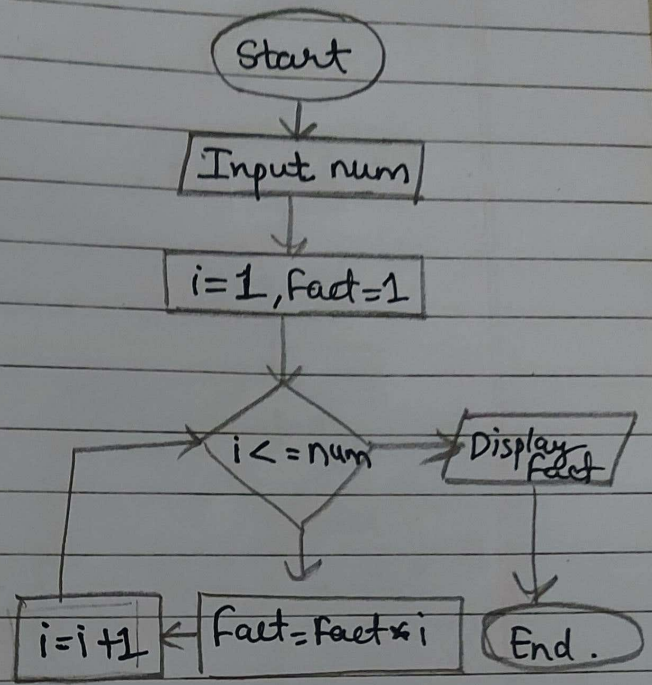 Start
Input num
i=1, Fact=1
i<=num
Display
Fact
Fact=Fact*i
i=i+1
End.